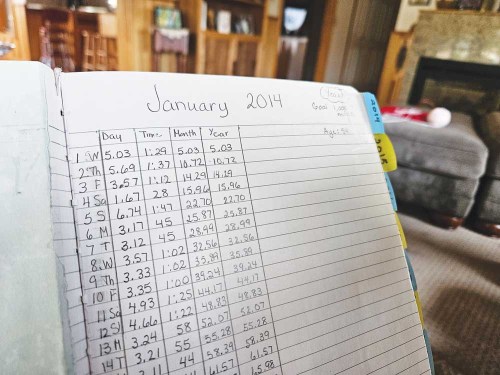 January 2014
Goal
Age: 54
Day Time Month Year
1 W 5.03 1:29 5.03 5.03
2 Th 5.69 1:37 10.72 10.72
3 F 3.57 1:12 14.29 14.29
4 Sa 1.67 28 15.96 15.96
5 S 6.74 1:47 22.70 22.70
6 M 3.17 45 25.87 25.87
7 T 3.12 45 28.99 28.99
8 W 3.57 1:02 32.56 32.56
9 Th 3.33 1:02 35.89 35.89
10 F 3.35 1:00 39.24 39.24
11 Sa 4.93 1:25 44.17 44.17
12 S 4.66 1:22 48.83 48.83
13 M 3.24 58 52.07 52.07
14 T 3.21 55 55.28 55.28
3.11 44 58.39 58.39
61.57 61.57
65.98
2014
2015